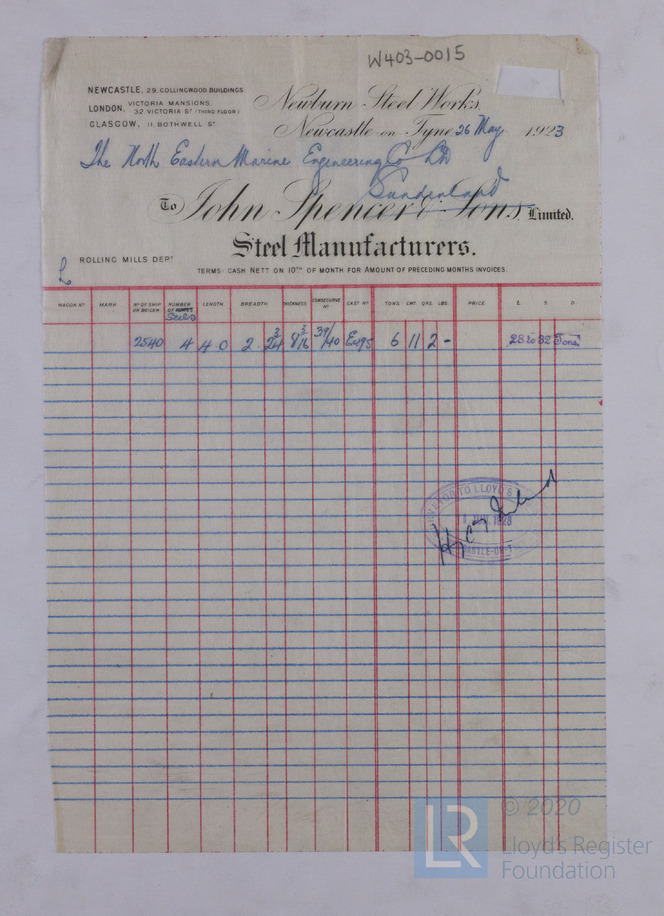 W403-0015
NEWCASTLE, 29, COLLINGWOOD BUILDINGS.
LONDON, VICTORIA MANSIONS,
32, VICTORIA ST (THIRD FLOOR)
GLASGOW, 11, BOTHWELL ST
Newburn Steel Works,
Newcastle on Tyne 26 May 1923
The North Eastern Marine Engineering Co Ltd
Sunderland
To John Spencer & Sons, Limited.
Steel Manufacturers.
ROLLING MILLS DEPT
TERMS: CASH NETT ON 10TH OF MONTH FOR AMOUNT OF PRECEDING MONTHS INVOICES.
WAGON NO MARK NO OF SHIP OR BOILER NUMBER OF LENGTH BREADTH THICKNESS CONSECUTIVE NO CAST NO TONS CWT. QRS. LBS. PRICE £ S D
2540 4 4 0 2 3/24 8 3/16 39/40 E495 6 11 2 - 28 to 32 Tons
TO LLOYD'S
© 2020
LR Lloyd's Register
Foundation